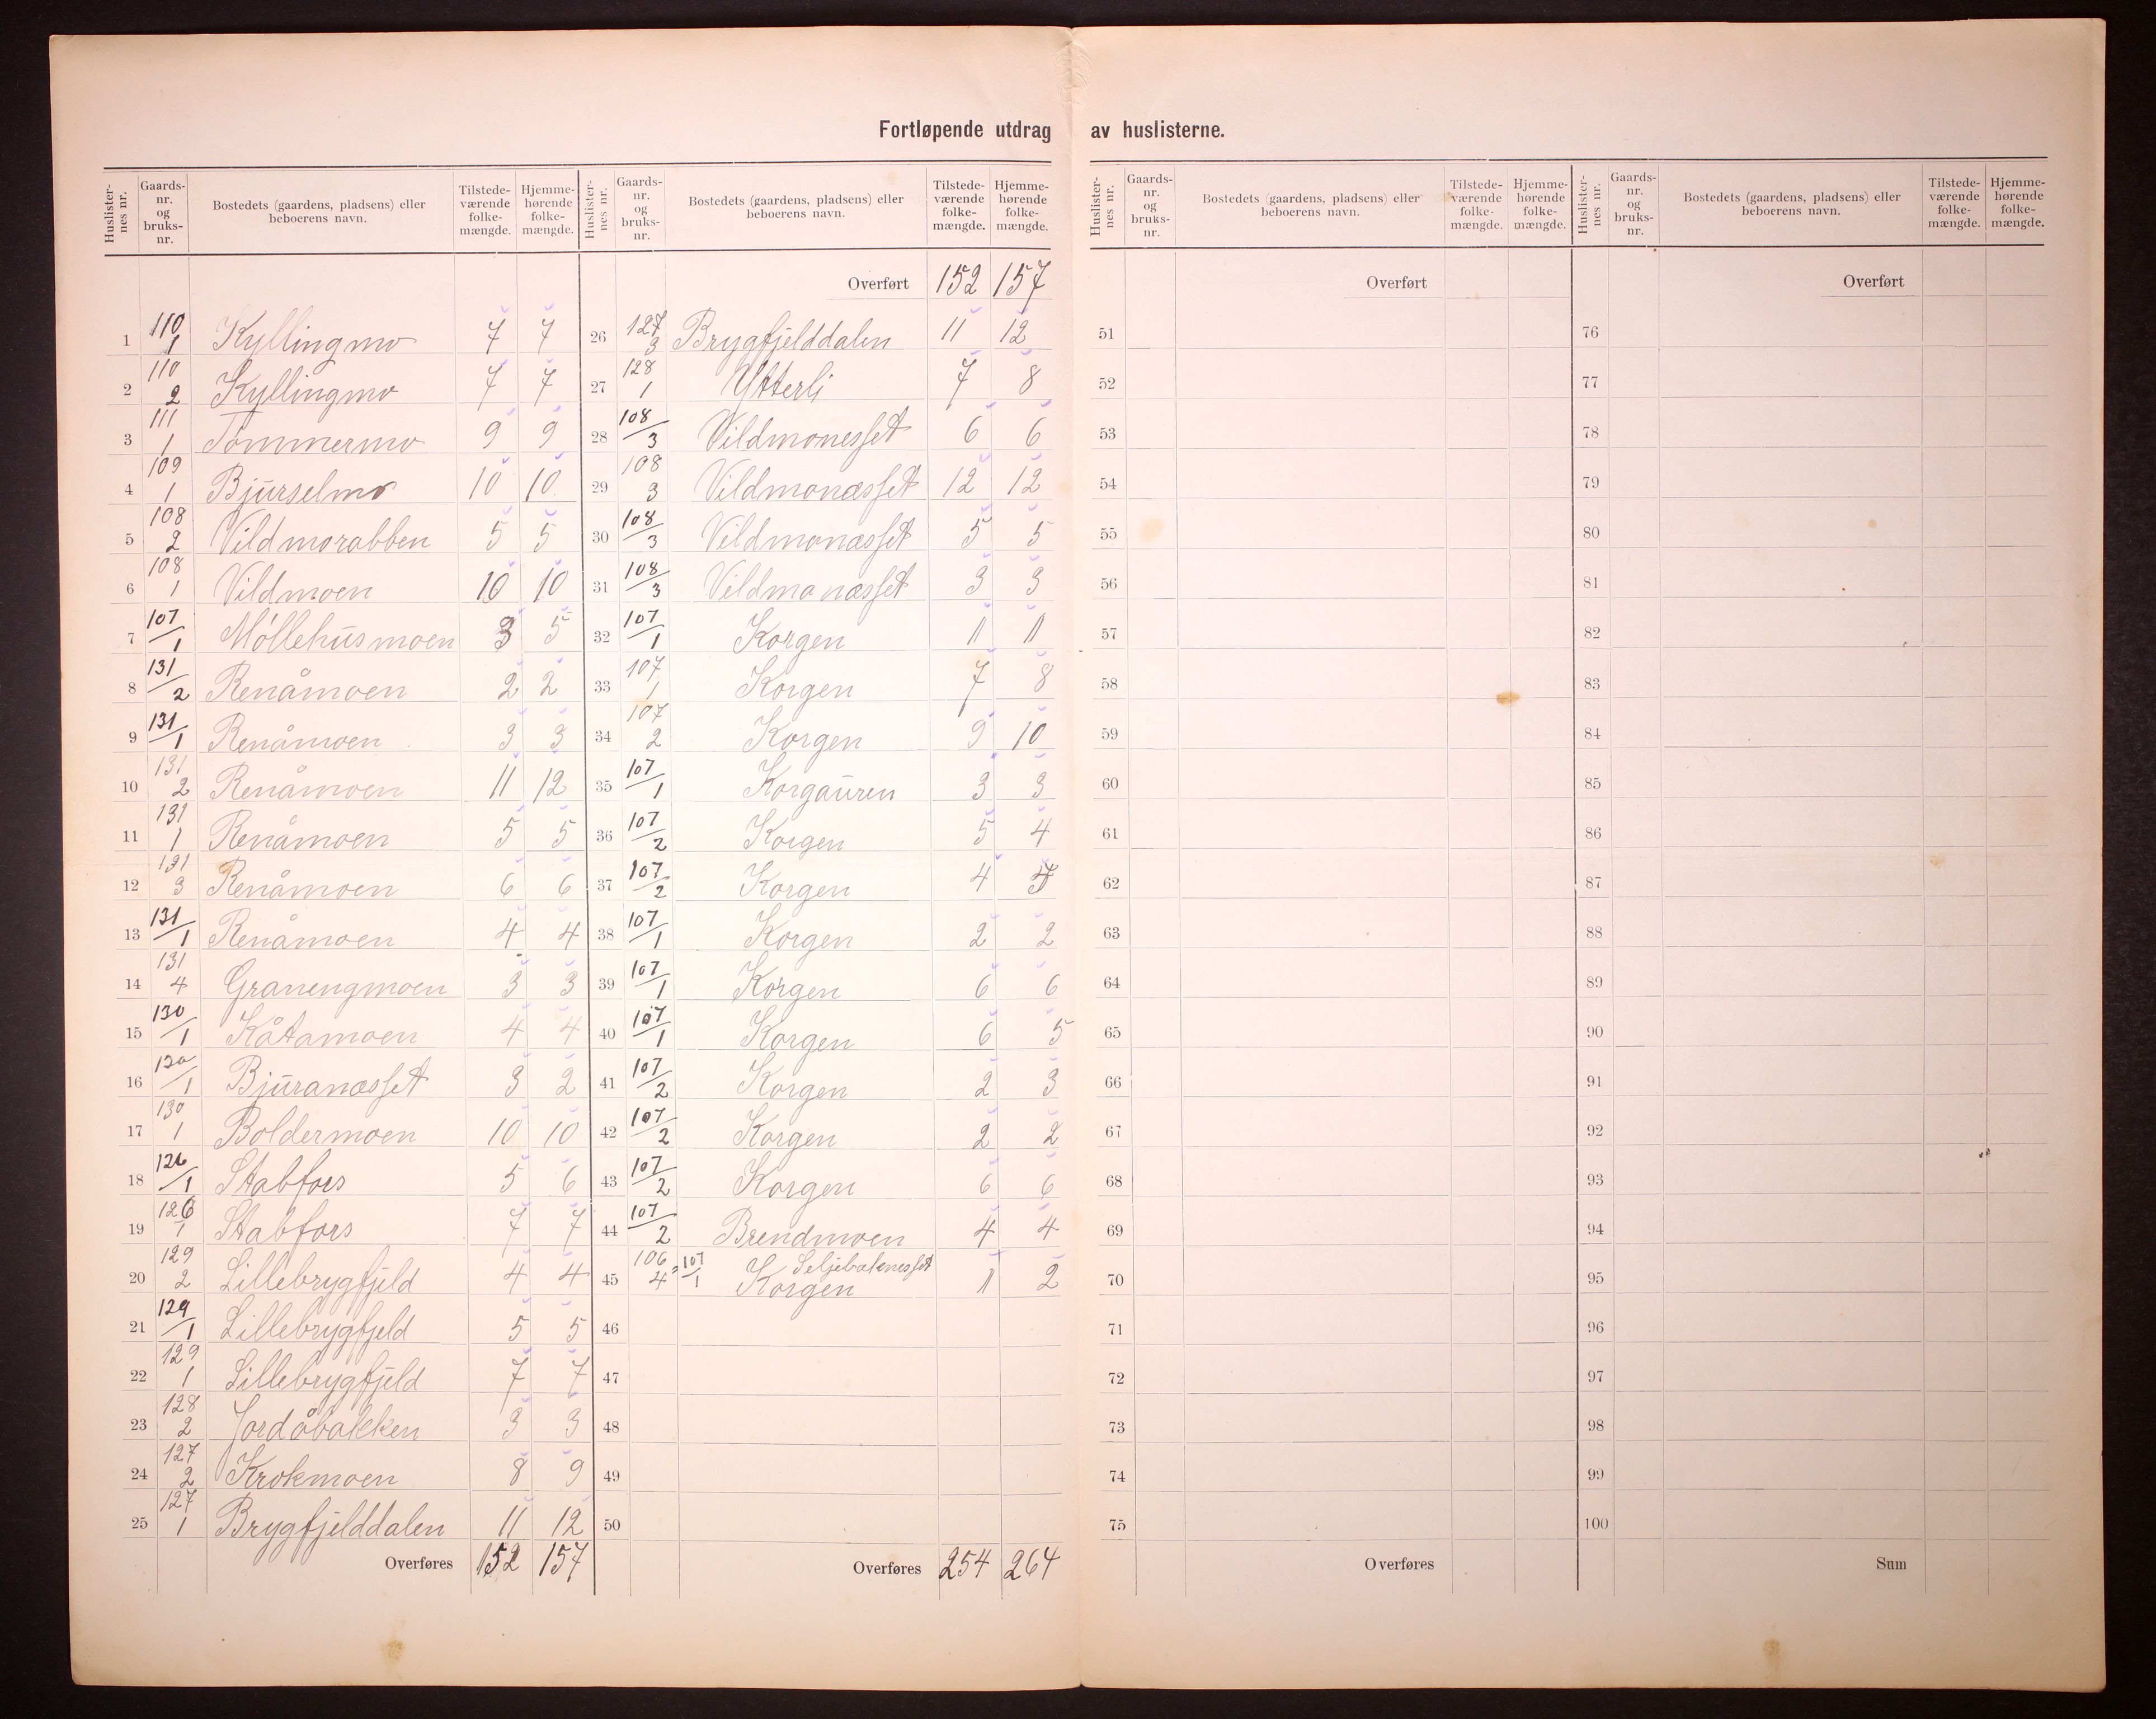 Fortløpende utdrag av huslisterne.
Huslister-nes nr. Gaards-nr. og bruks-nr. Bostedets (gaardens, pladsens) eller beboerens navn. Tilstede-værende folke-mængde. Hjemme-hørende folke-mængde.
1 110/1 Kyllingmo 7 7
2 110/2 Kyllingmo 7 7
3 111/1 Tømmermo 9 9
4 109/1 Bjurselmo 10 10
5 108/2 Vildmorabben 5 5
6 108/1 Vildmoen 10 10
7 107/1 Møllehusmoen 3 5
8 131/2 Renåmoen 2 2
9 131/1 Renåmoen 3 3
10 131/2 Renåmoen 11 12
11 131/1 Renåmoen 5 5
12 131/3 Renåmoen 6 6
13 131/1 Renåmoen 4 4
14 131/4 Granengmoen 3 3
15 130/1 Kåtamoen 4 4
16 130/1 Bjuranæsset 3 2
17 130/1 Boldermoen 10 10
18 126/1 Stabfors 5 6
19 126/1 Stabfors 7 7
20 129/2 Lillebrygfjeld 4 4
21 129/1 Lillebrygfjeld 5 5
22 129/1 Lillebrygfjeld 7 7
23 128/2 Jordåbakken 3 3
24 127/2 Krokmoen 8 9
25 127/1 Brygfjelddalen 11 12
Overføres 152 157
Huslister-nes nr. Gaards-nr. og bruks-nr. Bostedets (gaardens, pladsens) eller beboerens navn. Tilstede-værende folke-mængde. Hjemme-hørende folke-mængde.
Overført 152 157
26 127/3 Brygfjelddalen 11 12
27 128/1 Ytterli 7 8
28 108/3 Vildmonesset 6 6
29 108/3 Vildmonæsset 12 12
30 108/3 Vildmonæsset 5 5
31 108/3 Vildmonæsset 3 3
32 107/1 Korgen 1 1
33 107/1 Korgen 7 8
34 107/2 Korgen 9 10
35 107/1 Korgauren 3 3
36 107/2 Korgen 5 4
37 107/2 Korgen 4
38 107/1 Korgen 2 2
39 107/1 Korgen 6 6
40 107/1 Korgen 6 5
41 107/2 Korgen 2 3
42 107/2 Korgen 2 2
43 107/2 Korgen 6 6
44 107/2 Brendmoen 4 4
45 106/4 107/1 Seljebaknesset Korgen 1 2
46
47
48
49
50
Overføres 254 264
Huslister-nes nr. Gaards-nr. og bruks-nr. Bostedets (gaardens, pladsens) eller beboerens navn. Tilstede-værende folke-mængde. Hjemme-hørende folke-mængde.
Overført
51
52
53
54
55
56
57
58
59
60
61
62
63
64
65
66
67
68
69
70
71
72
73
74
75
Overføres
Huslister-nes nr. Gaards-nr. og bruks-nr. Bostedets (gaardens, pladsens) eller beboerens navn. Tilstede-værende folke-mængde. Hjemme-hørende folke-mængde.
Overført
76
77
78
79
80
81
82
83
84
85
86
87
88
89
90
91
92
93
94
95
96
97
98
99
100
Sum